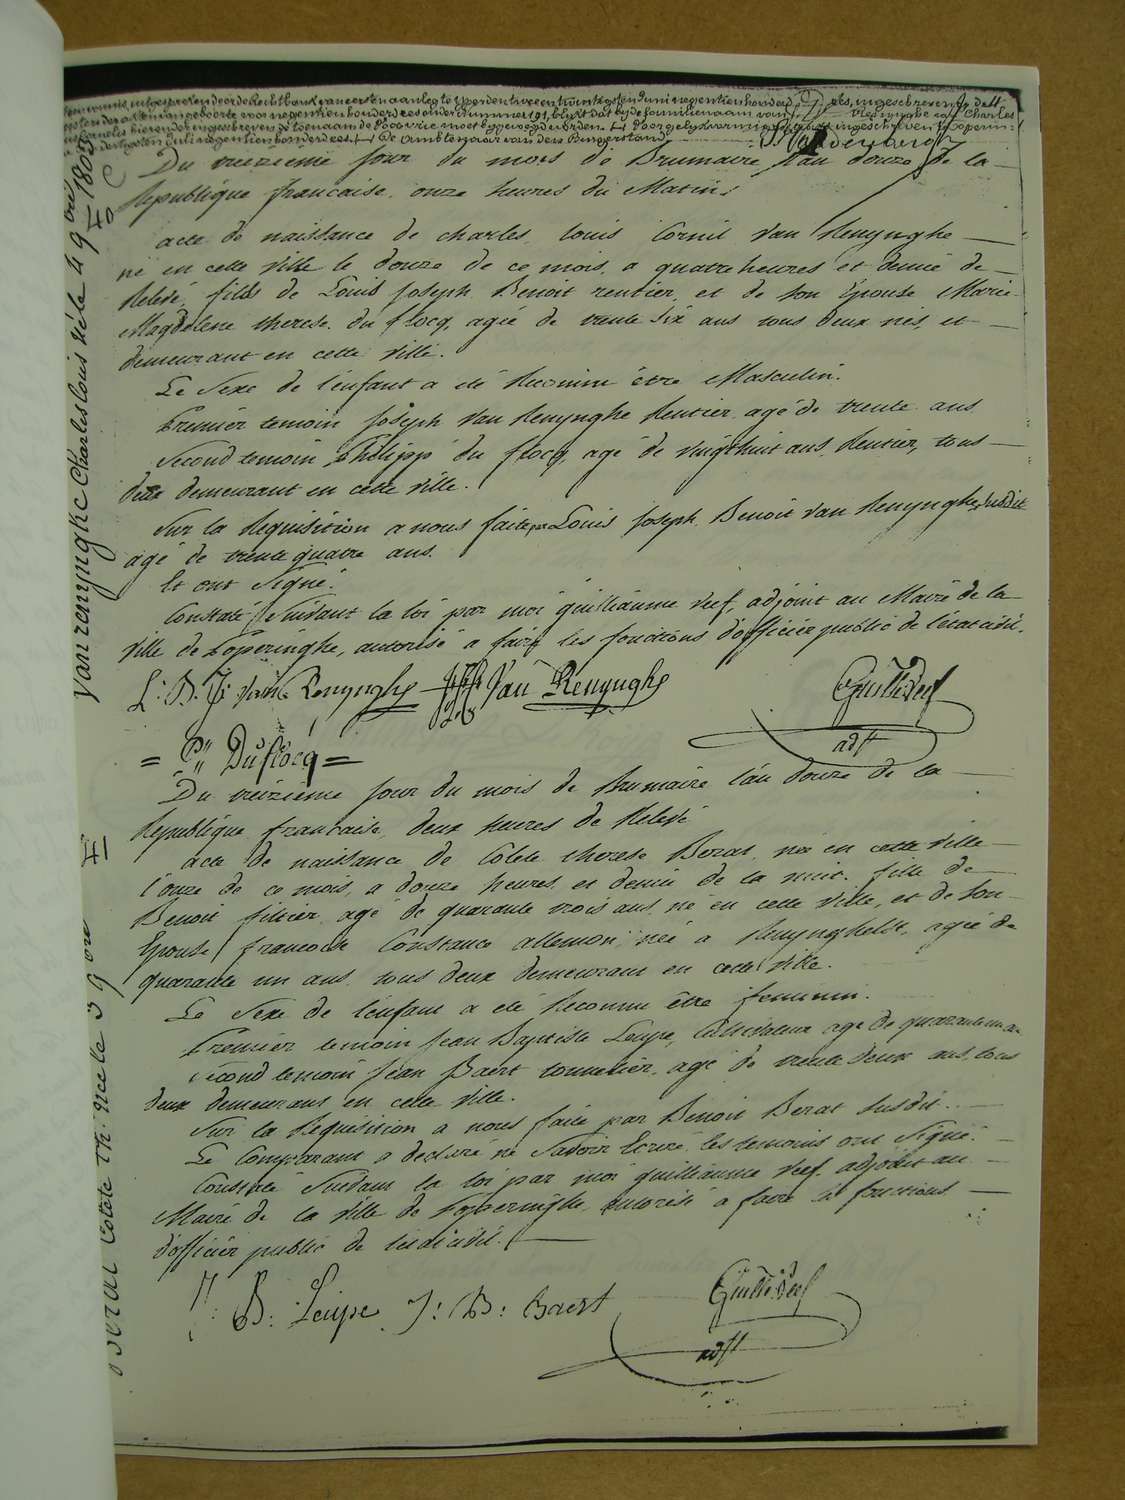 Van renynghe Charles louis né le 4 9bre 1803
Du treizieme jour du mois de Brumaire l'an douze de la
Republique francaise, onze heures du Matin;
acte de naissance de charles louis Cornil Van Renynghe
né en cette ville le douze de ce mois, a quatre heures et demie de
Relevé, fils de Louis Joseph Benoit rentier, et de son Epouse Marie
Magdelene therese du flocq, agée de trente six ans tous deux nés, et
demeurant en cette ville.
Le Sexe de l'enfant a été Reconnu être Masculin.
Premier temoin Joseph Van Renynghe Rentier agé de trente ans
Second temoin Philippe du flocq, agé de vingthuit ans, Rentier, tous
deux demeurant en cette ville.
Sur la Requisition a nous faite par Louis Joseph Benoit Van Renynghe, Susdit
agé de trente quatre ans.
Et ont Signé.
Constaté Suivant la loi par moi guilliaume Veef, adjoint au Maire de la
ville de Poperinghe, autorisé a faire les fonctions d'officier public de l'état civil.
L: B: J: Van Renynghe Van Renynghe Guill: Veef
adjt
= P" Duflocq =
Beral Colete Th: née le 3 9bre
Du treizieme jour du mois de Brumaire l'an douze de la
Republique francaise, deux heures de Relevé
acte de naissance de Colete therese Berat née en cette ville
l'onze de ce mois, a douze heures et demie de la nuit, fille de
Benoit filtier agé de quarante trois ans, né en cette ville, et de son
Epouse francoise Constance allemon, née a Renynghelst, agée de
quarante un ans, tous deux demeurant en cette ville.
Le Sexe de l'enfant a été Reconnu être feminin.
Premier temoin Jean Baptiste Leupe, Cultivateur agé de quarante un ans
Second temoin Jean Baert tonnelier, agé de trente deux ans, tous
deux demeurans en cette ville.
Sur la Requisition a nous faite par Benoit Berat Susdit.
Le Comparant a declaré ne Savoir Ecrire, les temoins ont Signé.
Constaté Suivant la loi par moi guilliaume Veef, adjoint au
Maire de la ville de Poperinghe, autorisé a faire les fonctions
d'officier public de l'etat civil.
J: B: Leupe J: B: Baert Guill: Veef
adjt